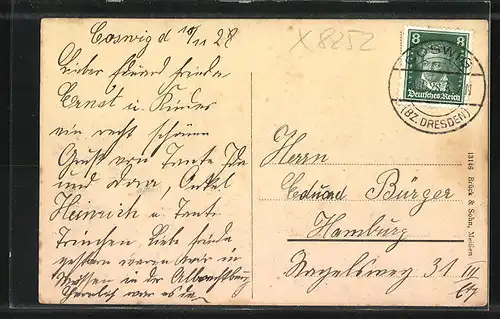 Coswig d 10/11 28
Lieber Eduard Frieda
Ernst u. Kinder
ein recht schönen
Gruß von Tante Ida
und Papa, Onkel
Heinrich u. Tante
Trinchen, Liebe Frieda,
gestern waren wir in
Meissen in der Albrechtsburg
Herrlich war es da
X8252
8
8
Deutsches Reich
COSWIG
(BZ. DRESDEN)
Herrn
Eduard Bürger
Hamburg
Nagelsweg 31 III
Etg
13146 Brück & Sohn, Meißen